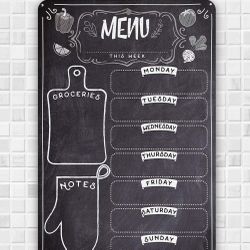 MENU
THIS WEEK
GROCERIES
NOTES
MONDAY
TUESDAY
WEDNESDAY
THURSDAY
FRIDAY
SATURDAY
SUNDAY